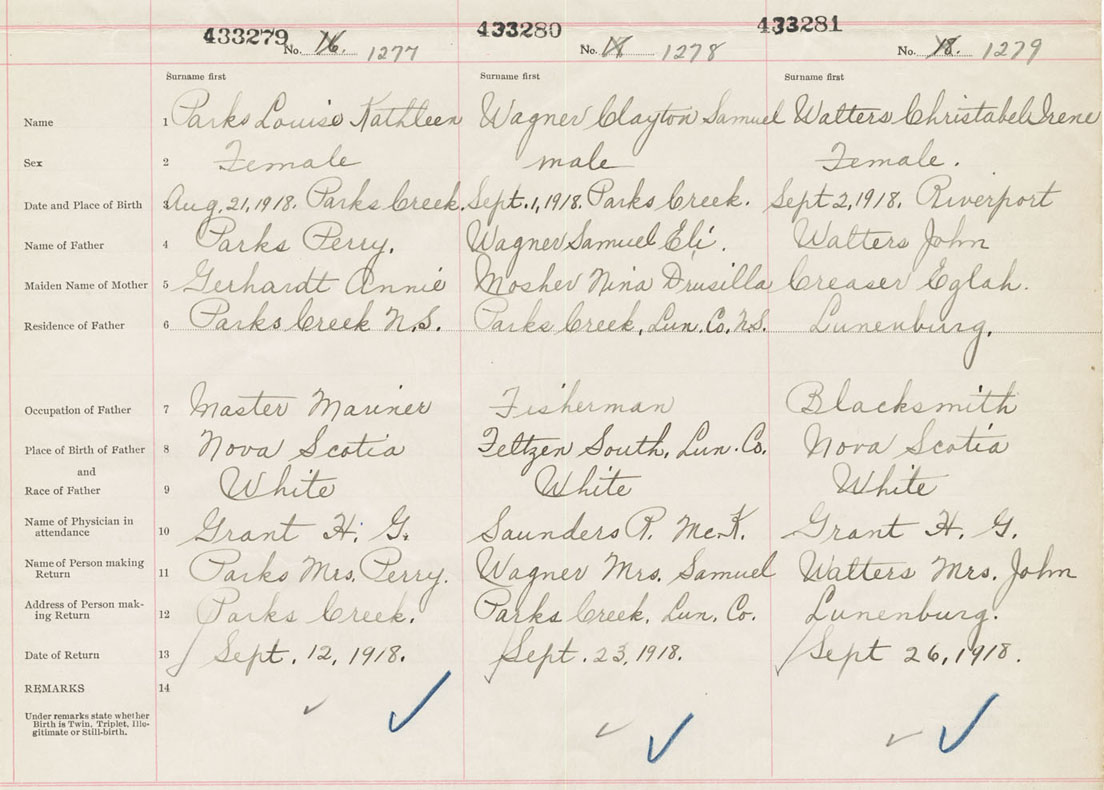 433279 433280 433281
No. 16. 1277 No. 18 1278 No. 18. 1279
Surname first Surname first Surname first
Name 1 Parks Louise Kathleen Wagner Clayton Samuel Walters Christabel Irene
Sex 2 Female male Female.
Date and Place of Birth 3 Aug. 21, 1918. Parks Creek. Sept. 1, 1918. Parks Creek. Sept 2, 1918. Riverport
Name of Father 4 Parks Perry. Wagner Samuel Eli. Walters John
Maiden Name of Mother 5 Gerhardt Annie Mosher Nina Drusilla Creaser Eglah.
Residence of Father 6 Parks Creek N.S. Parks Creek, Lun. Co. N.S. Lunenburg.
Occupation of Father 7 Master Mariner Fisherman Blacksmith
Place of Birth of Father 8 Nova Scotia Feltzen South, Lun. Co. Nova Scotia
and
Race of Father 9 White White White
Name of Physician in attendance 10 Grant H. G. Saunders R. McK. Grant H. G.
Name of Person making Return 11 Parks Mrs. Perry. Wagner Mrs. Samuel Walters Mrs. John
Address of Person mak-ing Return 12 Parks Creek. Parks Creek, Lun. Co. Lunenburg.
Date of Return 13 Sept. 12, 1918. Sept. 23, 1918. Sept 26, 1918.
REMARKS 14
Under remarks state whether
Birth is Twin, Triplet, Ille-
gitimate or Still-birth.